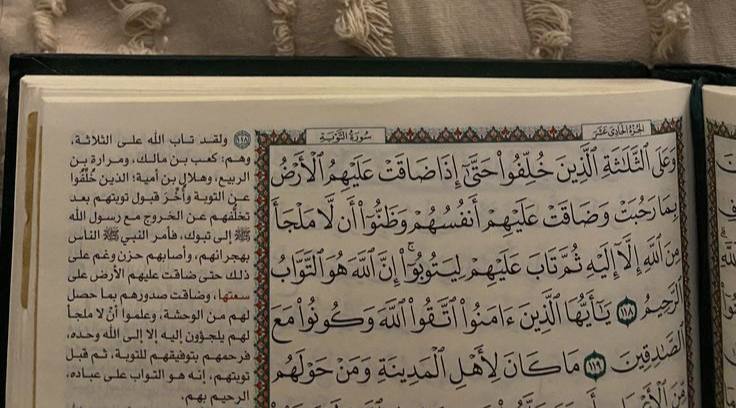 سُورَةُ التَّوْبَةِ
الجُزءُ الحَادِي عَشَر
وَعَلَى ٱلثَّلَٰثَةِ ٱلَّذِينَ خُلِّفُوا۟ حَتَّىٰٓ إِذَا ضَاقَتْ عَلَيْهِمُ ٱلْأَرْضُ
بِمَا رَحُبَتْ وَضَاقَتْ عَلَيْهِمْ أَنفُسُهُمْ وَظَنُّوٓا۟ أَن لَّا مَلْجَأَ
مِنَ ٱللَّهِ إِلَّآ إِلَيْهِ ثُمَّ تَابَ عَلَيْهِمْ لِيَتُوبُوٓا۟ ۚ إِنَّ ٱللَّهَ هُوَ ٱلتَّوَّابُ
ٱلرَّحِيمُ ١١٨ يَٰٓأَيُّهَا ٱلَّذِينَ ءَامَنُوا۟ ٱتَّقُوا۟ ٱللَّهَ وَكُونُوا۟ مَعَ
ٱلصَّٰدِقِينَ ١١٩ مَا كَانَ لِأَهْلِ ٱلْمَدِينَةِ وَمَنْ حَوْلَهُم
١١٨ ولقد تاب الله على الثلاثة،
وهم: كعب بن مالك، ومرارة بن
الربيع، وهلال بن أمية؛ الذين خُلِّفُوا
عن التوبة وأُخِّرَ قبول توبتهم بعد
تخلُّفهم عن الخروج مع رسول الله
ﷺ إلى تبوك، فأمر النبي ﷺ الناس
بهجرانهم، وأصابهم حزن وغم على
ذلك حتى ضاقت عليهم الأرض على
سعتها، وضاقت صدورهم بما حصل
لهم من الوحشة، وعلموا أنْ لا ملجأ
لهم يلجؤون إليه إلا إلى الله وحده،
فرحمهم بتوفيقهم للتوبة، ثم قبل
توبتهم، إنه هو التواب على عباده،
الرحيم بهم.